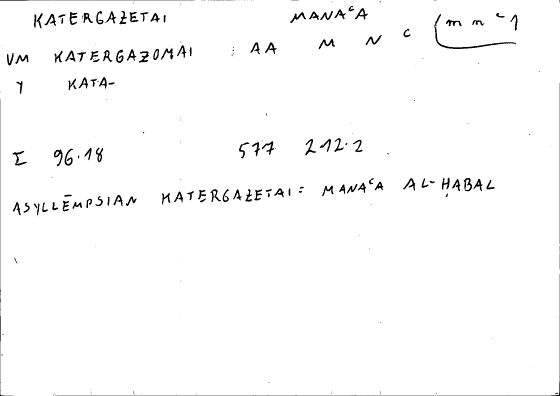 KATERGAZETAI MANAᶜA
VM KATERGAZOMAI : AA M N C (m n ᶜ 1
Y KATA-
Σ 96.18 577 212.2
ASYLLĒMPSIAN KATERGAZETAI: MANAᶜA AL-ḤABAL